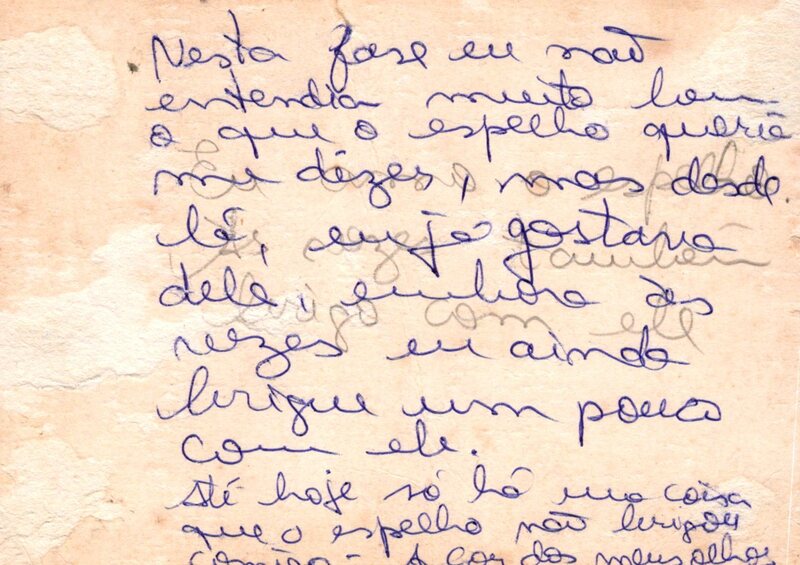 Nesta fase eu não
entendia muito bem
o que o espelho queria
me dizer, mas desde
lá, eu já gostava
dele, embora às
vezes eu ainda
brigue um pouco
com ele.
Até hoje só há uma coisa
que o espelho não brigou
comigo - A cor dos meus olhos
o espelho
às vezes também
brigo com ele